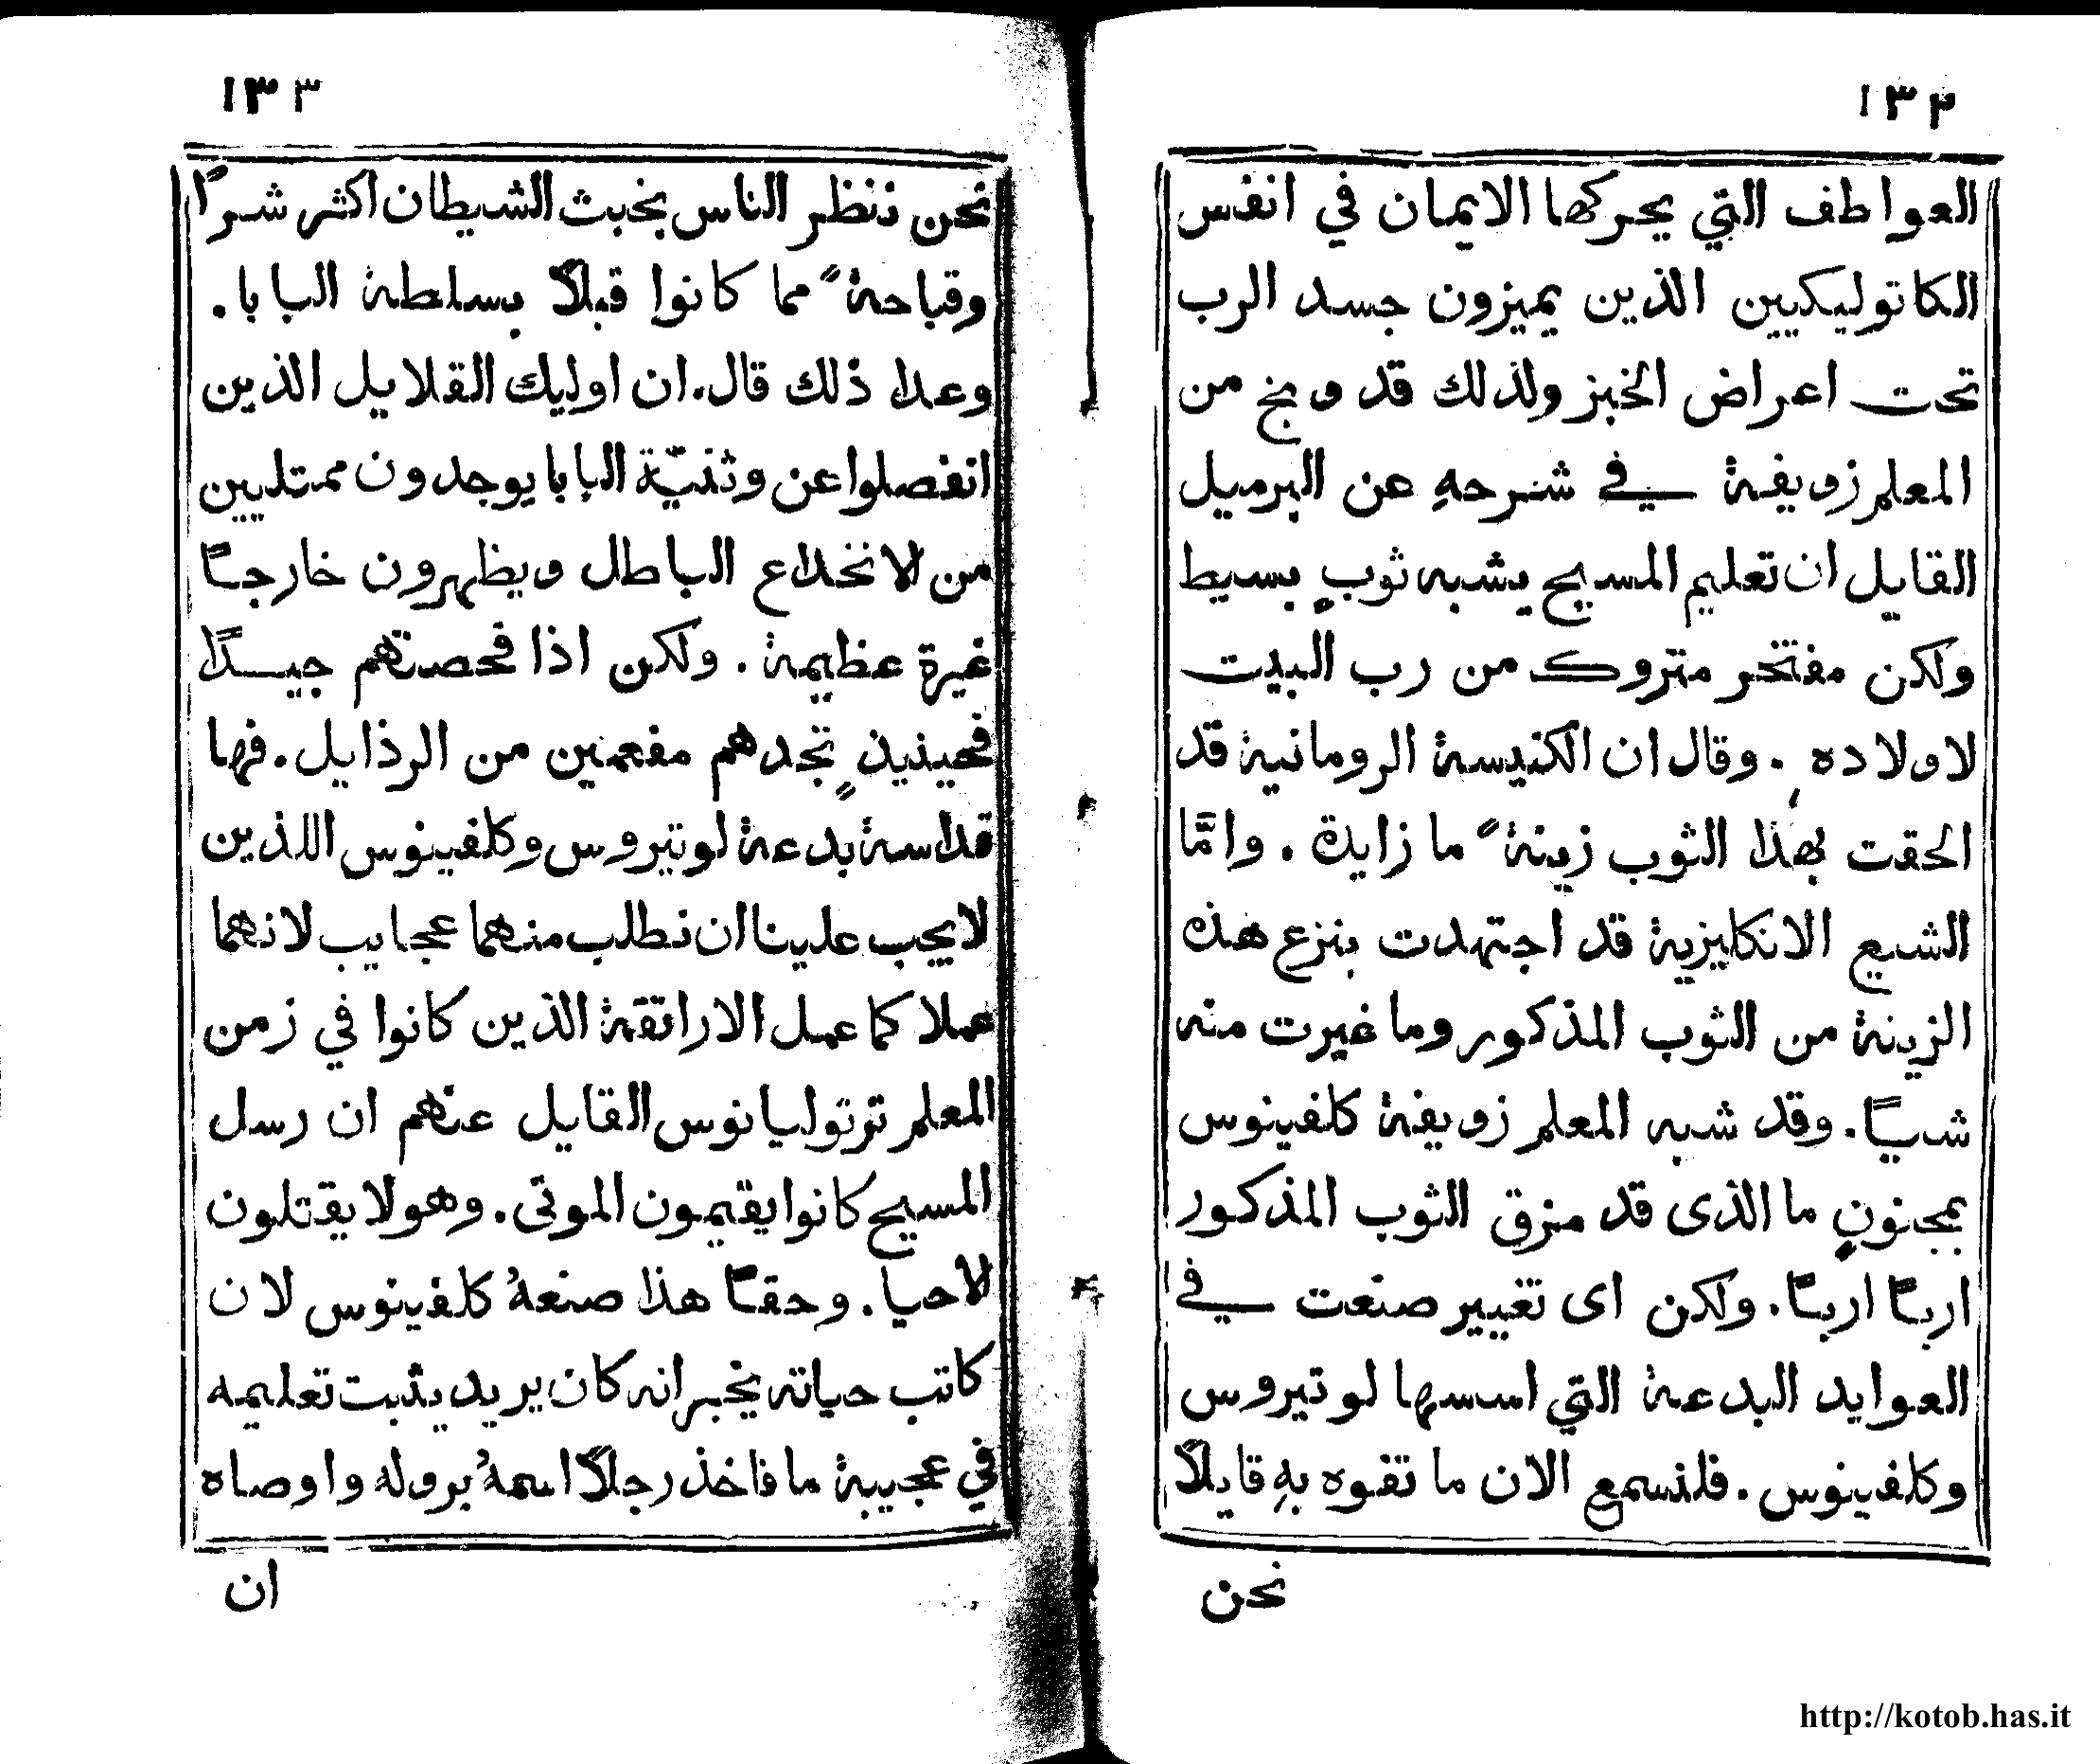 ١٣٢
العواطف التي يحركها الايمان في انفس
الكاتوليكيين الذين يميزون جسد الرب
تحت اعراض الخبز ولذلك قد وبخ من
المعلم زويفة في شرحهِ عن البرميل
القايل ان تعليم المسيح يشبه ثوبٍ بسيط
ولكن مفتخر متروك من رب البيت
لاولاده . وقال ان الكنيسة الرومانية قد
الحقت بهذا الثوب زينةً ما زايدة . وامَّا
الشيع الانكليزية قد اجتهدت بنزع هذه
الزينة من الثوب المذكور وما غيرت منه
شيـًا . وقد شبه المعلم زويفة كلفينوس
بمجنونٍ ما الذى قد مزق الثوب المذكور
اربـًا اربـًا . ولكن اى تغيير صنعت في
العوايد البدعة التي اسسها لوتيروس
وكلفينوس . فلنسمع الان ما تفوه بهِ قايلاً
نحن
١٣٣
نحن ننظر الناس بخبث الشيطان اكثر شرًا
وقباحةً مما كانوا قبلاً بسلطة البابا .
وعدا ذلك قال . ان اوليك القلايل الذين
انفصلوا عن وثنيّة البابا يوجدون ممتليين
من لانخداع الباطل ويظهرون خارجـًا
غيرة عظيمة . ولكن اذا فحصتهم جيـدًا
فحينيذٍ تجدهم مفعمين من الرذايل . فها
قداسة بدعة لوتيروس وكلفينوس اللذين
لايجب علينا ان نطلب منهما عجايب لانهما
عملا كما عمل الاراتقة الذين كانوا في زمن
المعلم ترتوليانوس القايل عنهم ان رسل
المسيح كانوا يقيمون الموتى . وهولا يقتلون
لاحيا . وحقـًا هذا صنعهُ كلفينوس لان
كاتب حياته يخبر انه كان يريد يثبت تعليمه
في عجيبة ما فاخذ رجلاً اسمهُ بروله واوصاه
ان
http://kotob.has.it